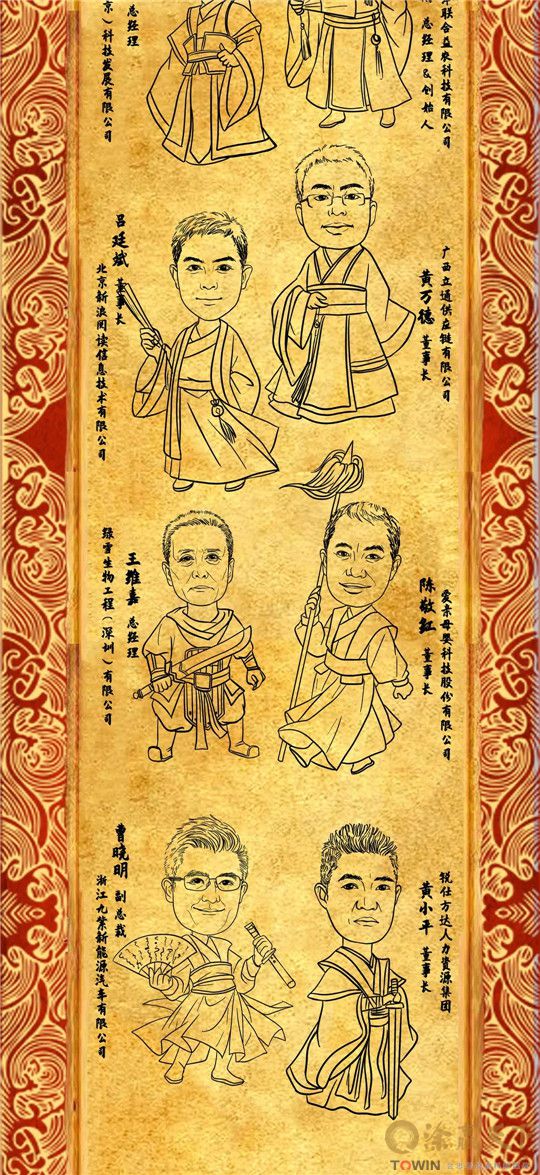 京）科技发展有限公司
总经理
联合益农科技有限公司
总经理&创始人
吕廷斌 董事长
北京新浪阅读信息技术有限公司
广西立通供应链有限公司
黄万德 董事长
王维嘉 总经理
绿雪生物工程（深圳）有限公司
爱亲母婴科技股份有限公司
陈敬红 董事长
曹晓明 副总裁
浙江九紫新能源汽车有限公司
锐仕方达人力资源集团
黄小平 董事长
TOWIN